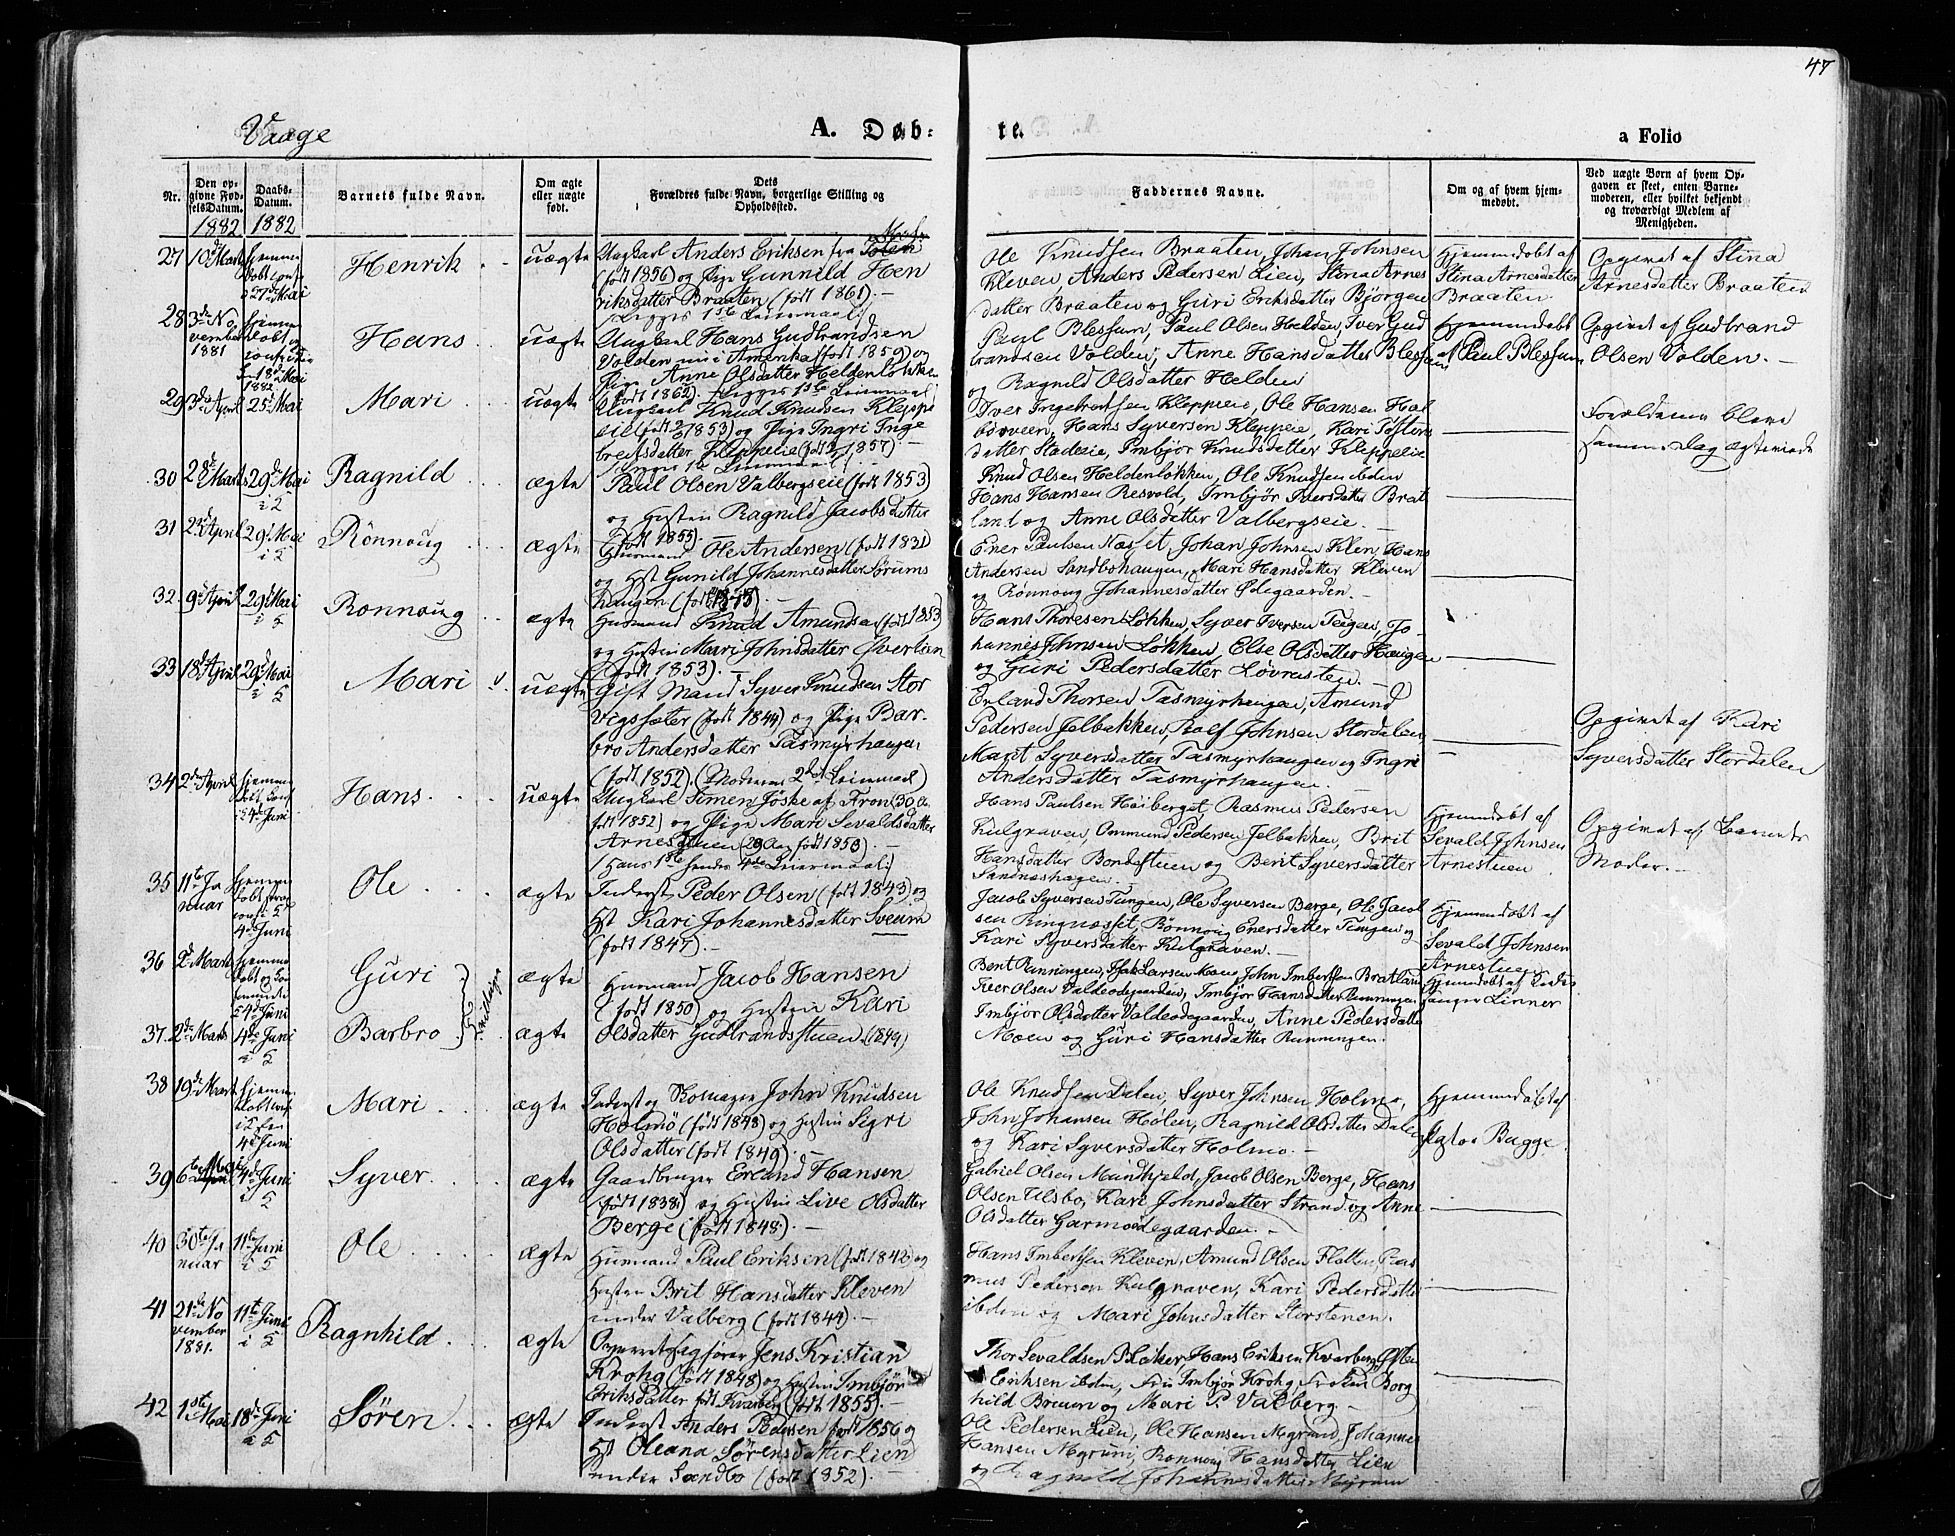 47
Vaage
A. Døb-
te.
a Folio
Nr.
Den op-
givne Fød-
selsDatum.
1882
Daabs-
Datum.
1882
Barnets fulde Navn.
Om ægte
eller uægte
født.
Dets
Forældres fulde Navn, borgerlige Stilling og
Opholdssted.
Faddernes Navne.
Om og af hvem hjem-
medøbt.
Ved uægte Børn af hvem Op-
gaven er skeet, enten Barne-
moderen, eller hvilket bekjendt
og troværdigt Medlem af
Menigheden.
27 10de Marts
27de Mai
Henrik
uægte
Ungkarl Anders Eriksen fra
(født 1856) og Pige Gunnild Hen
riksdatter Braaten (født 1861).
Ole Knudsen Braaten, Johan Johnsen
Kleven, Anders Pedersen Lien, Stina Arnes
datter Braaten og Guri Eriksdatter Bjørgen
Hjemmedøbt af
Stina Arnesdatter
Braaten.
Opgivet af Stina
Arnesdatter Braaten
28 3de No
vember
1881
18de Mai
1882
Hans
uægte
Ungkarl Hans Gudbrandsen
Volden nu i Amerika (født 1859) og
Pige Anne Olsdatter Heldenløkken
(født 1862).
Paul Blessum, Paul Olsen Helden, Iver Gud
brandsen Volden, Anne Hansdatter Blessum
og Ragnild Olsdatter Helden
Hjemmedøbt
af Paul Blessum
Opgivet af Gudbrand
Olsen Volden.
29 3de April
25de Mai
Mari
uægte
Ungkarl Knud Knudsen Kleppe
eie (født 1853) og Pige Ingri Inge
bretsdatter Kleppeie (født 1857)
Iver Ingebretsen Kleppeie, Ole Hansen
Hans Syversen Kleppeie, Kari
datter Stadeie, Imbjør Knudsdatter Kleppeie
Forældrene bleve
samme Dag ægteviede
30 28de Marts
29de Mai
i 5
Ragnild
ægte
Paul Olsen Valbergseie (født 1853)
og Hustru Ragnild Jacobsdatter
(født 1855).
Knud Olsen Heldenløkken, Ole Knudsen ibden
Hans Hansen Resvold, Imbjør Iversdatter Brat
land og Anne Olsdatter Valbergseie.
31 22de April
29de Mai
i 5
Rønnoug
ægte
Huusmand Ole Andersen (født 1831)
og Hst Gunild Johannesdatter Sørums
haugen (født
Ener Paulsen Næsset, Johan Johnsen Klen, Hans
Andersen Sandbohaugen, Mari Hansdatter Kleven
og Rønnoug Johannesdatter Ødegaarden.
32 9de April
29de Mai
i 5
Rønnoug
ægte
Husmand Knud Amundsen (født 1853)
og Hustru Mari Johnsdatter Øverlien
(født 1853).
Hans Thoresen Løkken, Syver Iversen Teigen, Jo
hannes Johnsen Løkken, Else Olsdatter Haugen
og Guri Pedersdatter Løvrusten.
33 18de April
29de Mai
i 5
Mari
uægte
Gift Mand Syver Knudsen Stor
vigssæter (født 1849) og Pige Bar-
bro Andersdatter Tasmyrhaugen
(født 1852).
Erland Thorsen Tasmyrhaugen, Amund
Pedersen Jelbakken, Rolf Johnsen Stordalen
Marit Syversdatter Tasmyrhaugen og Ingri
Andersdatter Tasmyrhaugen.
Opgivet af Kari
Syversdatter Stordalen
34 2de April
4de Juni
Hans
uægte
Ungkarl Simen Jøske af Fron (30 Aar
født 1852) og Pige Mari Sevaldsdatter
Arnestuen (29 Aar født 1853).
Hans Paulsen Høiberget, Rasmus Pedersen
Kulgraven, Ommund Pedersen Jelbakken, Brit
Hansdatter Bondestuen og Berit Syversdatter
Sandneshagen.
Hjemmedøbt af
Sevald Johnsen
Arnestuen
Opgivet af Barnets
Moder.
35 11te Ja
nuar
4de Juni
Ole
ægte
Inderst Peder Olsen (født 1843) og
Hst Kari Johannesdatter Sveum
(født 1847).
Jacob Syversen Tungen, Ole Syversen Berge, Ole Jacob
sen Ringnæsset, Rønnoug Enersdatter Tungen og
Kari Syversdatter Kulgraven.
Hjemmedøbt af
Sevald Johnsen
Arnestuen
36 2de Marts
4de Juni
Guri
Tvillinger
ægte
Husmand Jacob Hansen
(født 1850) og Hustru Kari
Olsdatter Gudbrandsstuen (1849)
Bent Runningen, Isak Larsen Moen, John Imbertsen Bratland
Iver Olsen Valdeødegaarden, Imbjør Hansdatter Runningen
Imbjør Olsdatter Valdeødegaarden, Anne Pedersdatter
Moen og Guri Hansdatter Runningen.
Hjemmedøbt af Kirke
sanger Linner
37. 2de Marts
4de Juni
i 5
Barbro
ægte
38 19de Marts
4de Juni
Mari
ægte
Inderst og Skomager John Knudsen
Holmø (født 1848) og Hustru Sigri
Olsdatter (født 1849).
Ole Knudsen Dalen, Syver Johnsen Holmo,
John Johansen Holen, Ragnild Olsdatter Dalen
og Kari Syversdatter Holmo.
Hjemmedøbt af
Bagge
39 6te
4de Juni
i 5
Syver
ægte
Gaardbruger Erland Hansen
(født 1838) og Hustru Live Olsdatter
Berge (født 1848).
Gabriel Olsen Mundhjeld, Jacob Olsen Berge, Hans
Olsen Ulsbo, Kari Johnsdatter Strand og Anne
Olsdatter Garmoødegaarden.
40 30te Ja
nuar
11te Juni
i 5
Ole
ægte
Husmand Paul Eriksen (født 1842) og
Hustru Brit Hansdatter Kleven
under Valberg (født 1849).
Hans Imbertsen Kleven, Amund Olsen Flatten, Ras
mus Pedersen Kulgraven, Kari Pedersdatter
ibden og Mari Johnsdatter Storstenen.
41 21de No
vember
1881.
11te Juni
i 5
Ragnhild
ægte
Jens Kristian
Krohg (født 1848) og Hustru Imbjør
Eriksdatter født Kvarberg (født 1855).
Thor Sevaldsen Blaker, Hans Eriksen Kvarberg, Østen
Eriksen ibden, Fru Imbjør Krohg, Frøken Borg
hild Breuen og Mari P. Valberg.
42 1ste Mai
18de Juni
i 5
Søren
ægte
Inderst Anders Pedersen født 1856 og
Hst Oleana Sørensdatter Lien
under Sandbo (født 1852).
Ole Pedersen Lien, Ole Hansen Myrund, Johannes
Hansen Myrum, Rønnoug Hansdatter Lien
og Ragnild Johannesdatter Myrum